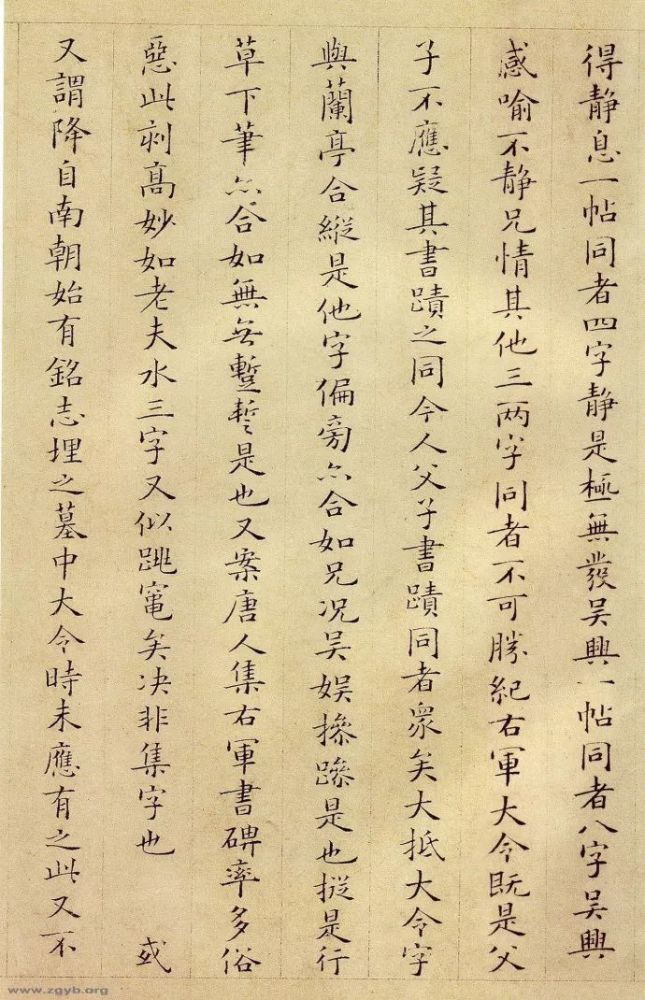 得静息一帖同者四字静是極無發吴興一帖同者八字吴興
感喻不静兄情其他三两字同者不可勝紀右軍大令既是父
子不應疑其書蹟之同今人父子書蹟同者衆矣大抵大令字
與蘭亭合縱是他字偏旁亦合如兄況吴娱摻蹤是也搃是行
草下筆亦合如無㐂蹔誓是也又案唐人集右軍書碑率多俗
惡此刻高妙如老夫水三字又似跳竃矣决非集字也 或
又謂降自南朝始有銘志埋之墓中大令時未應有之此又不
www.zgyb.org